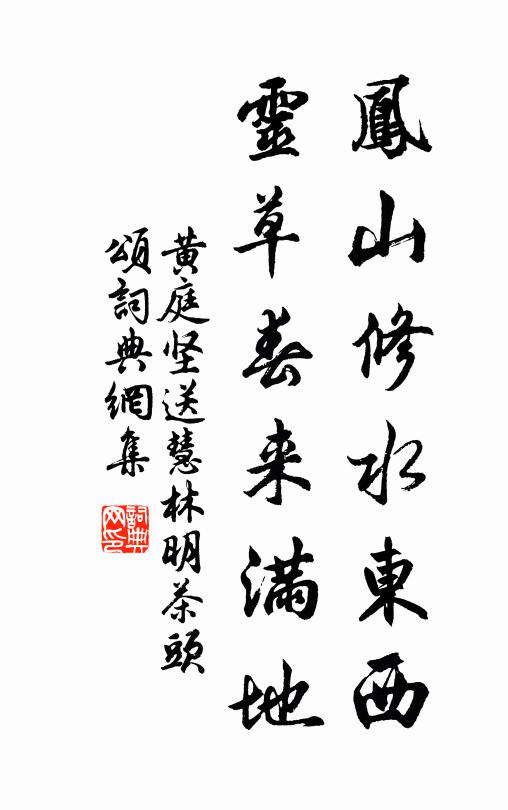 鳳山修水東西
靈草春来滿地
黄庭坚送慧林明茶頭
頌詞典網集
詞典網印